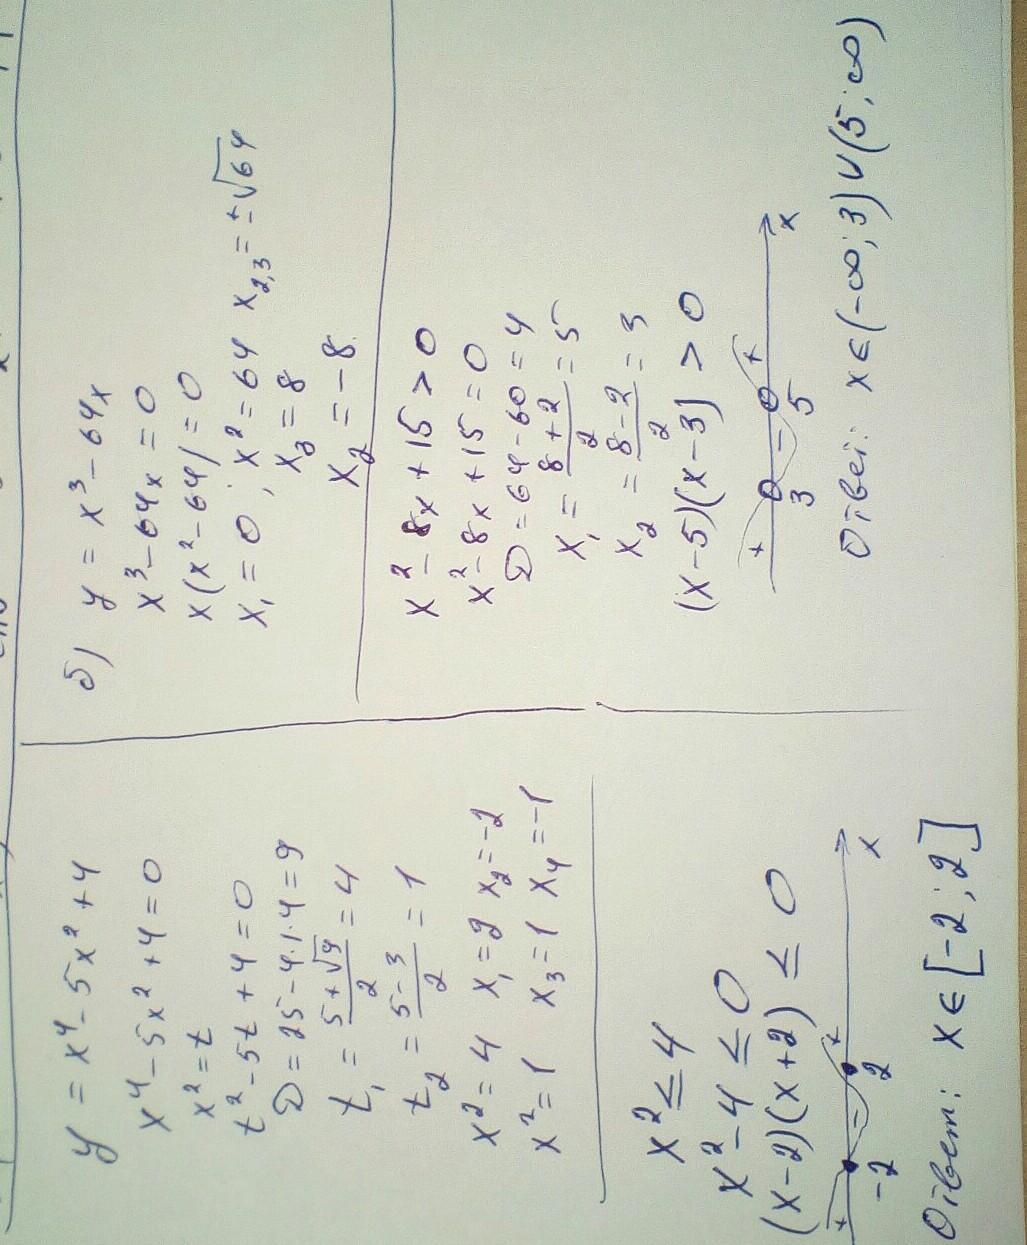 y = x⁴ - 5x² + 4
x⁴ - 5x² + 4 = 0
x² = t
t² - 5t + 4 = 0
D = 25 - 4·1·4 = 9
t₁ = (5 + √9)/2 = 4
t₂ = (5 - 3)/2 = 1
x² = 4 x₁ = 2 x₂ = -2
x² = 1 x₃ = 1 x₄ = -1
б) y = x³ - 64x
x³ - 64x = 0
x(x² - 64) = 0
x₁ = 0, x² = 64 x₂,₃ = ±√64
x₃ = 8
x₂ = -8
x² ≤ 4
x² - 4 ≤ 0
(x - 2)(x + 2) ≤ 0
+ - +
-2 2 x
Ответ: x ∈ [-2; 2]
x² - 8x + 15 > 0
x² - 8x + 15 = 0
D = 64 - 60 = 4
x₁ = (8 + 2)/2 = 5
x₂ = (8 - 2)/2 = 3
(x - 5)(x - 3) > 0
+ - +
3 5 x
Ответ: x ∈ (-∞; 3) ∪ (5; ∞)